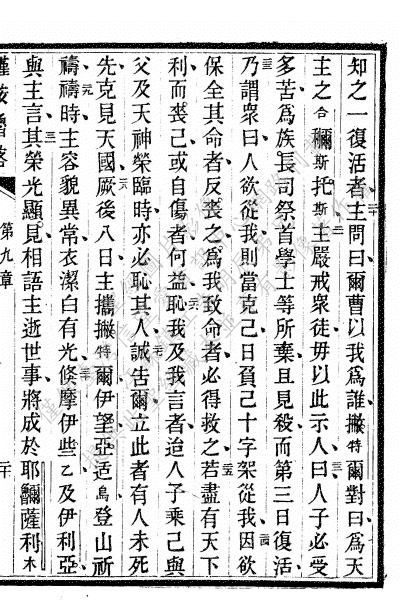 知之一復活者主問曰爾曹以我爲誰撇特爾對曰爲天
主之合穪斯托斯主嚴戒衆徒毋以此示人曰人子必受
多苦爲族長司祭首學士等所棄且見殺而第三日復活
乃謂衆曰人欲從我則當克己日負己十字架從我因欲
保全其命者反喪之爲我致命者必得救之若盡有天下
利而喪己或自傷者何益恥我及我言者迨人子乘己與
父及天神榮臨時亦必恥其人誠告爾立此者有人未死
先克見天國厥後八日主攜撇特爾伊望亞适烏登山祈
禱禱時主容貌異常衣潔白有光倏摩伊些乙及伊利亞
與主言其榮光顯見相語主逝世事將成於耶穪薩利木
第九章
二十